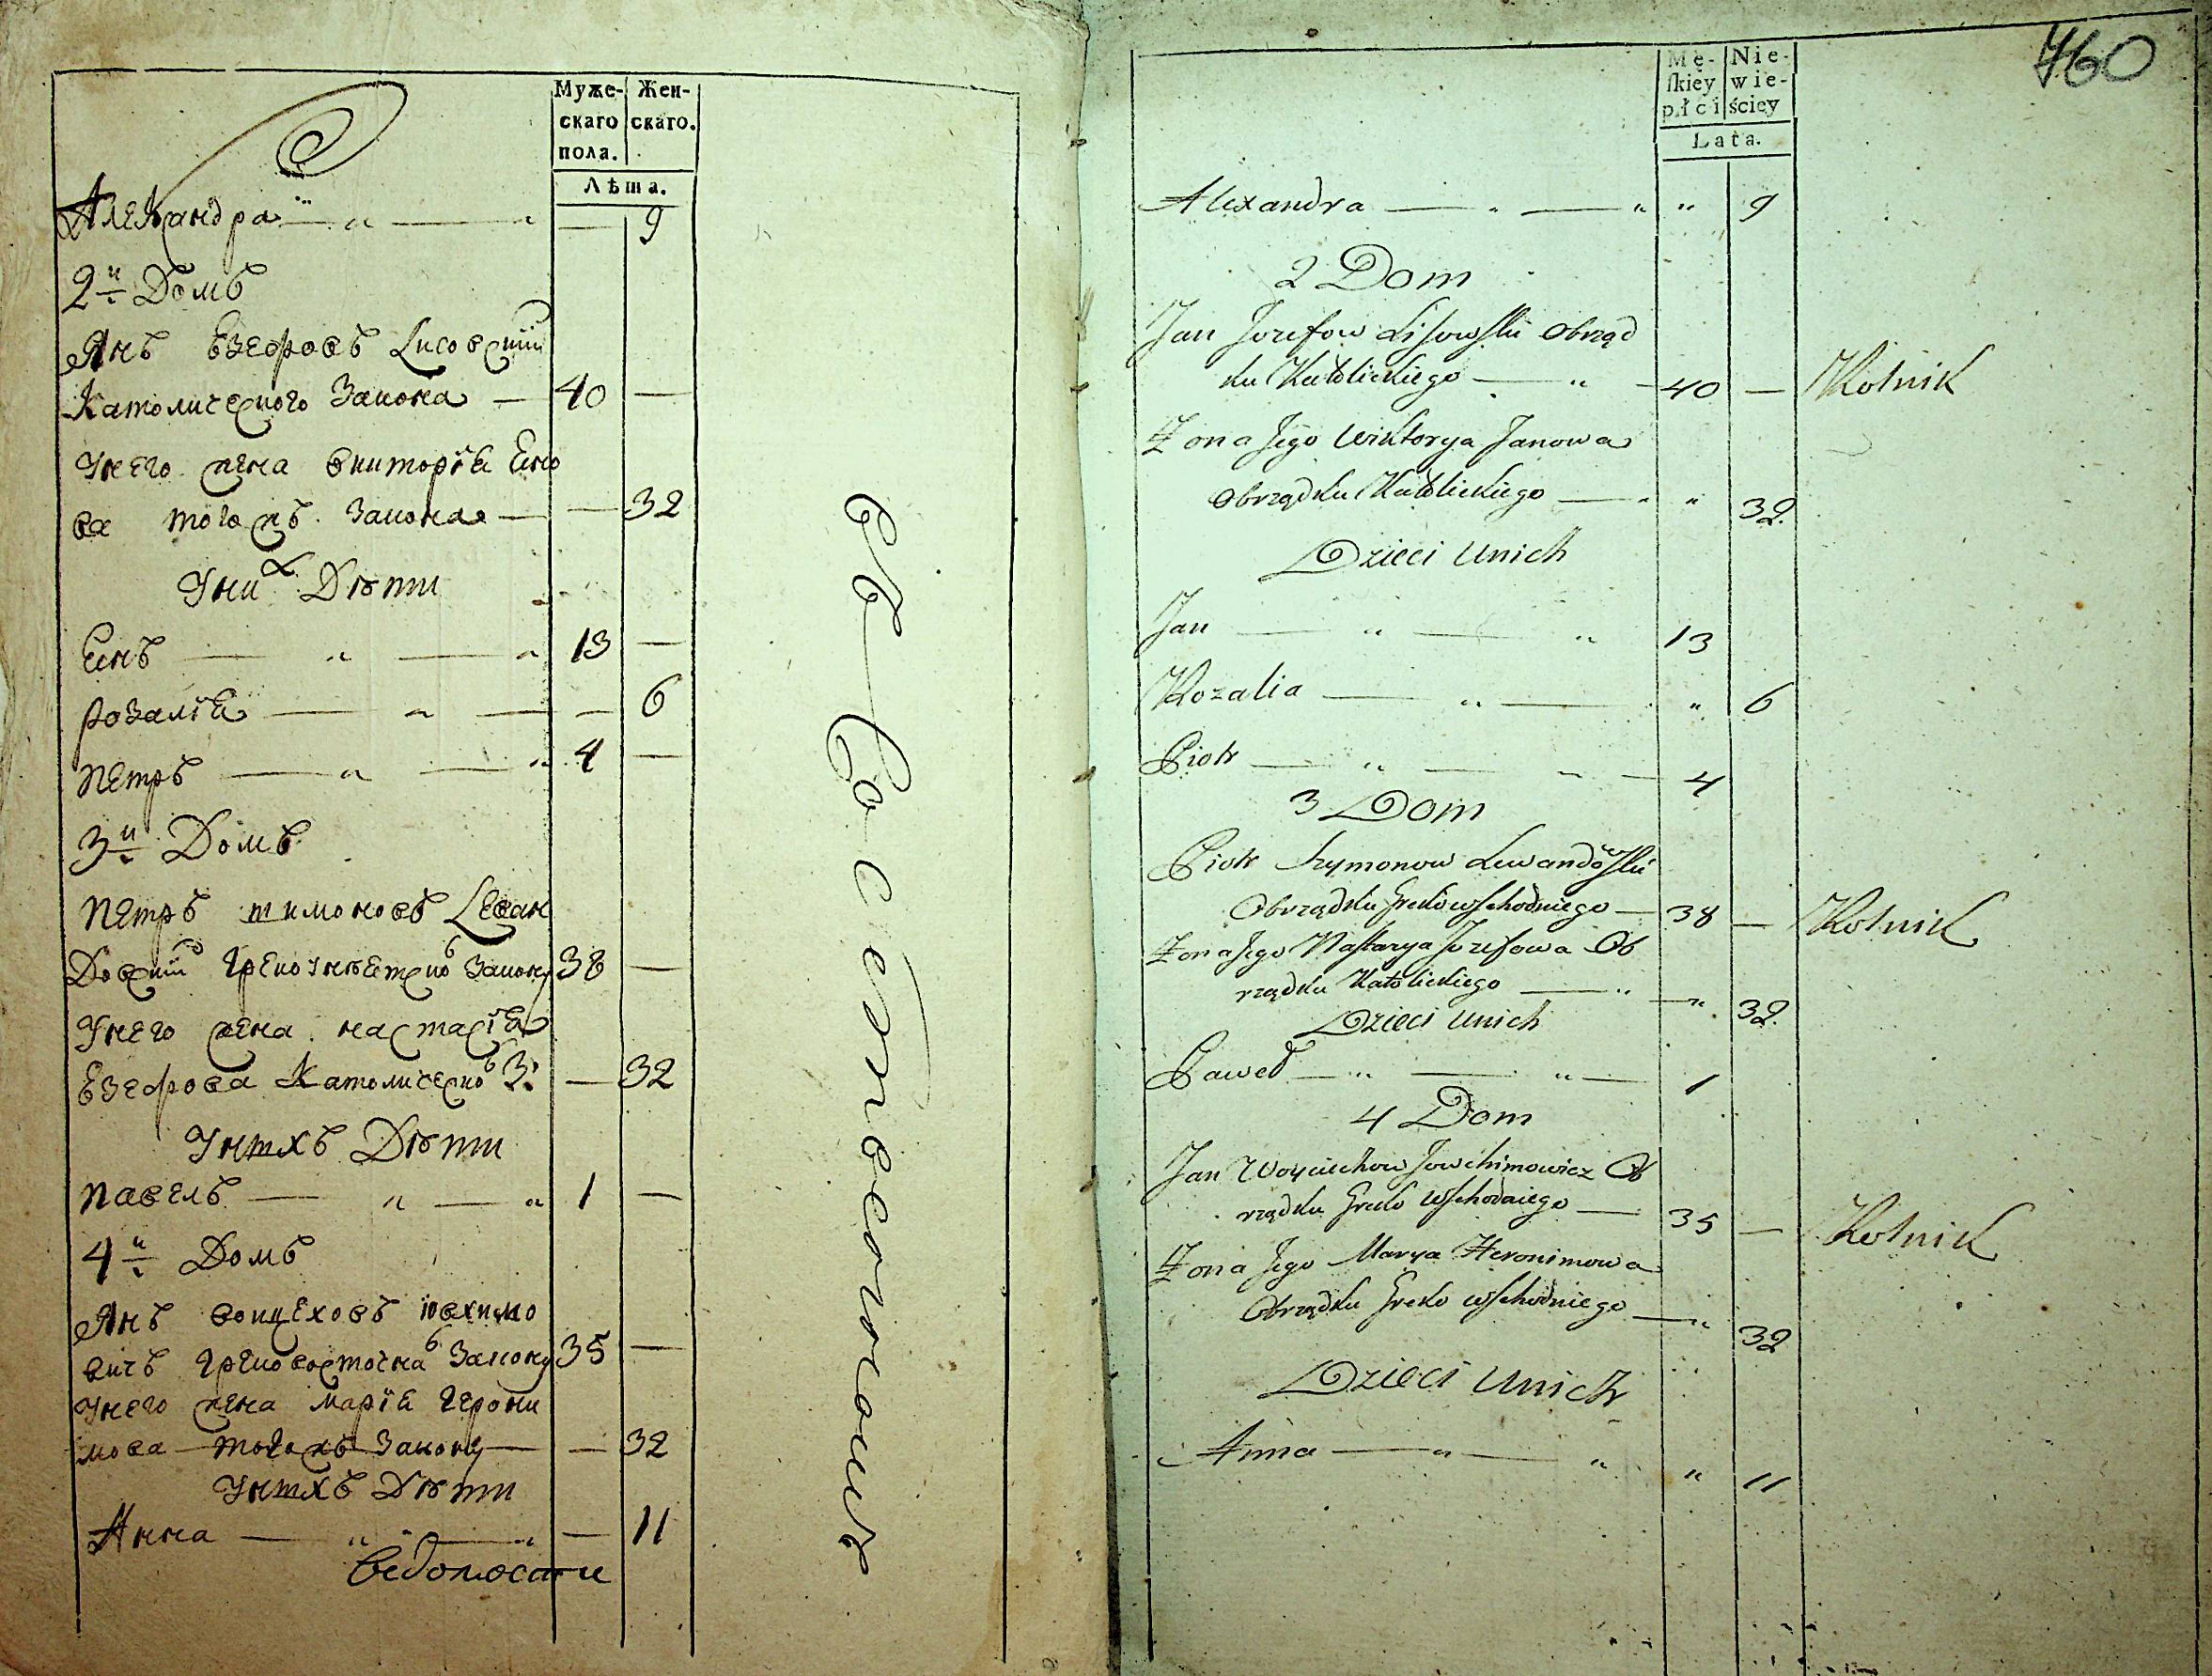 Муже-
скаго
пола.
Жен-
скаго.
Лѣта.
Александра — „ — „ — 9
2й Домъ
Янъ Езефовъ Лисовский
Католического Закона — 40 —
Унего жена Виктория Яно
ва тогожъ Закона — — 32
Уних Дѣти
Янъ — „ — „ 13 —
Розалія — „ — — 6
Петръ — „ — „ 4 —
3й Домъ
Петръ Шимоновъ Леван
Довский Грекоуниетско Закону 38 —
Унего жена Настасія
Езефова Католическо З: — 32
Унихъ Дѣти
Павелъ — „ — „ 1 —
4й Домъ
Янъ Войцеховъ Юхимо
вичъ Грековосточна Закону 35 —
Унего жена Марія Герони
мова — тогожъ Закону — — 32
Унихъ Дѣти
Анна — „ — „ — 11
Ведомости
760
Mę-
skiey
płci
Nie-
wie-
ściey
Lata.
Alexandra — „ — „ „ 9
2 Dom
Jan Jozefow Lisowski Obrząd
ku Katolickiego — „ — 40 — Rolnik
Żona Jego Wiktorya Janowa
Obrządku Katolickiego — „ „ 32.
Dzieci Unich
Jan — „ — „ 13
Rozalia — „ — „ 6
Piotr — „ — „ — 4
3 Dom
Piotr Szymonow Lewandowski
Obrządku Greko wschodniego — 38 — Rolnik
Żona Jego Nastazya Jozefowa Ob
rządku Katolickiego — „ — „ 32.
Dzieci Unich
Paweł — „ — „ — 1
4 Dom
Jan Woyciechow Jowchimowicz Ob
rządku Greko Wschodniego — 35 — Rolnik
Żona Jego Marya Heronimowa
Obrządku Greko wschodniego — „ 32
Dzieci Unich
Anna — „ — „ „ 11